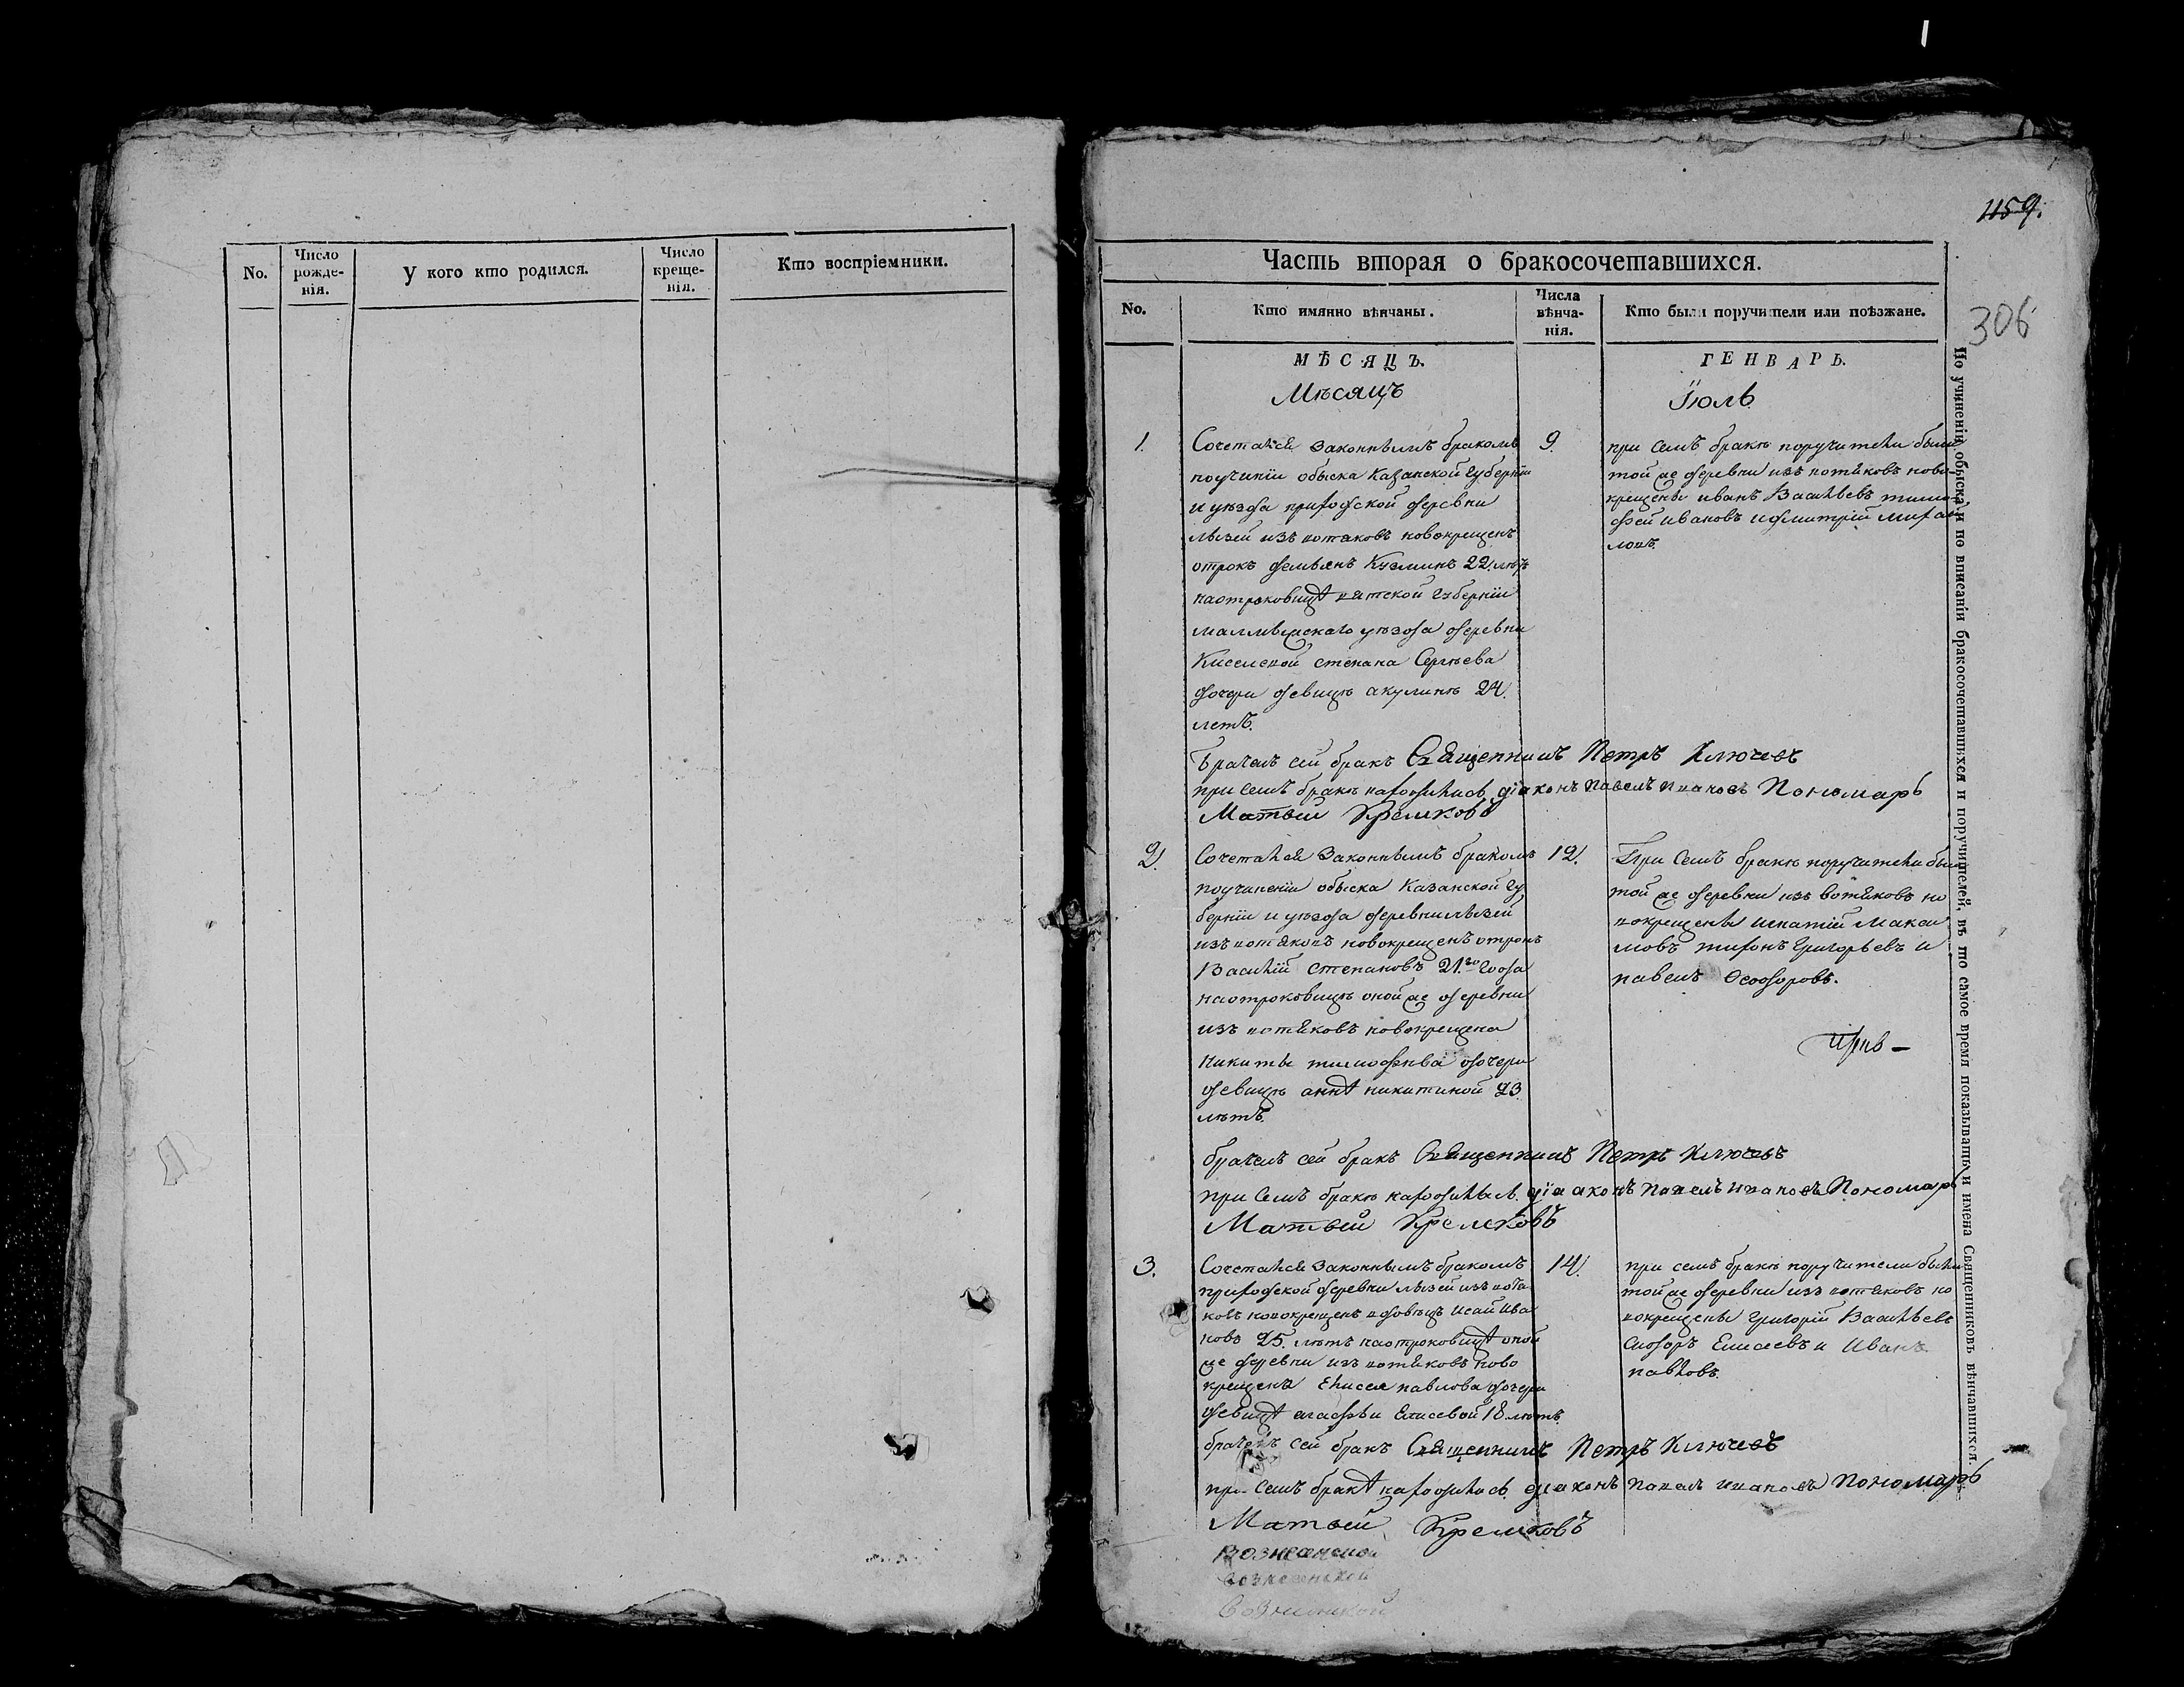 No.
Число рожде-нія.
У кого кто родился.
Число креще-нія.
Кто воспріемники.
1159.
306
Часть вторая о бракосочетавшихся.
No.
Кто имянно вѣнчаны.
Числа вѣнча-нія.
Кто были поручители или поѣзжане.
МѢСЯЦЪ.
ГЕНВАРЬ.
Мѣсяцъ
Іюль
1.
Сочетался законнымъ бракомъ
поучинiи обыска Казанской Губерніи
и уѣзда приходской деревни
лызей изъ вотяковъ новокрещенъ
отрокъ демьянъ Кузминъ 22. лѣтъ
наотроковицѣ вятской Губерніи
малмыжскаго уѣзда деревни
Киселевой степана Сергѣева
дочери девицѣ акулинѣ 24.
летъ.
9.
при семъ бракѣ поручители были
той же деревни изъ вотяковъ ново-
крещены иванъ Васильевъ тимо
фей ивановъ идмитрій михаи
ловъ.
Брачилъ сей бракъ Священникъ Петръ Ключевъ
при семъ бракѣ находились діяконъ Павелъ Ивановъ Пономарь
Матвей Кремковъ
2.
Сочетался законнымъ бракомъ
поучиненіи обыска Казанской Гу
берніи и уѣзда деревни лызей
изъ вотяковъ новокрещенъ отрокъ
Василій степановъ 21.го года
наотроковицѣ оной же деревни
изъ вотяковъ новокрещена
Никиты тимофѣева дочери
девицѣ аннѣ никитиной 23
лѣтъ.
12.
При семъ бракѣ поручители были
той же деревни изъ вотяковъ но
вокрещены игнатій макси
мовъ тихонъ Григорьевъ и
павелъ Ѳеодоровъ.
брачилъ сей бракъ Священникъ Петръ Ключевъ
при семъ бракѣ находились. діаконъ Павелъ Ивановъ Пономарь
Матвей Кремковъ
3.
Сочетался законнымъ бракомъ
приходской деревни лызей изъ вотя
ковъ новокрещенъ вдовецъ исай ива
новъ 25. лѣтъ наотроковицѣ оной
же деревни изъ вотяковъ ново
крещена Елисея павлова дочери
девицѣ агафьи Елисевой 18 лѣтъ.
14.
при семъ бракѣ поручители были
той же деревни изъ вотяковъ но
вокрещены Григорій Васильевъ
Сидоръ Елисеевъ и Иванъ
павловъ.
брачилъ сей бракъ Священникъ Петръ Ключевъ
при семъ бракѣ находились. діаконъ Павелъ Ивановъ Пономарь
Матвей Кремковъ
По учиненіи обыска, и по вписаніи бракосочетавшихся и поручителей, въ то самое время показывать и имена Священниковъ вѣнчавшихся.